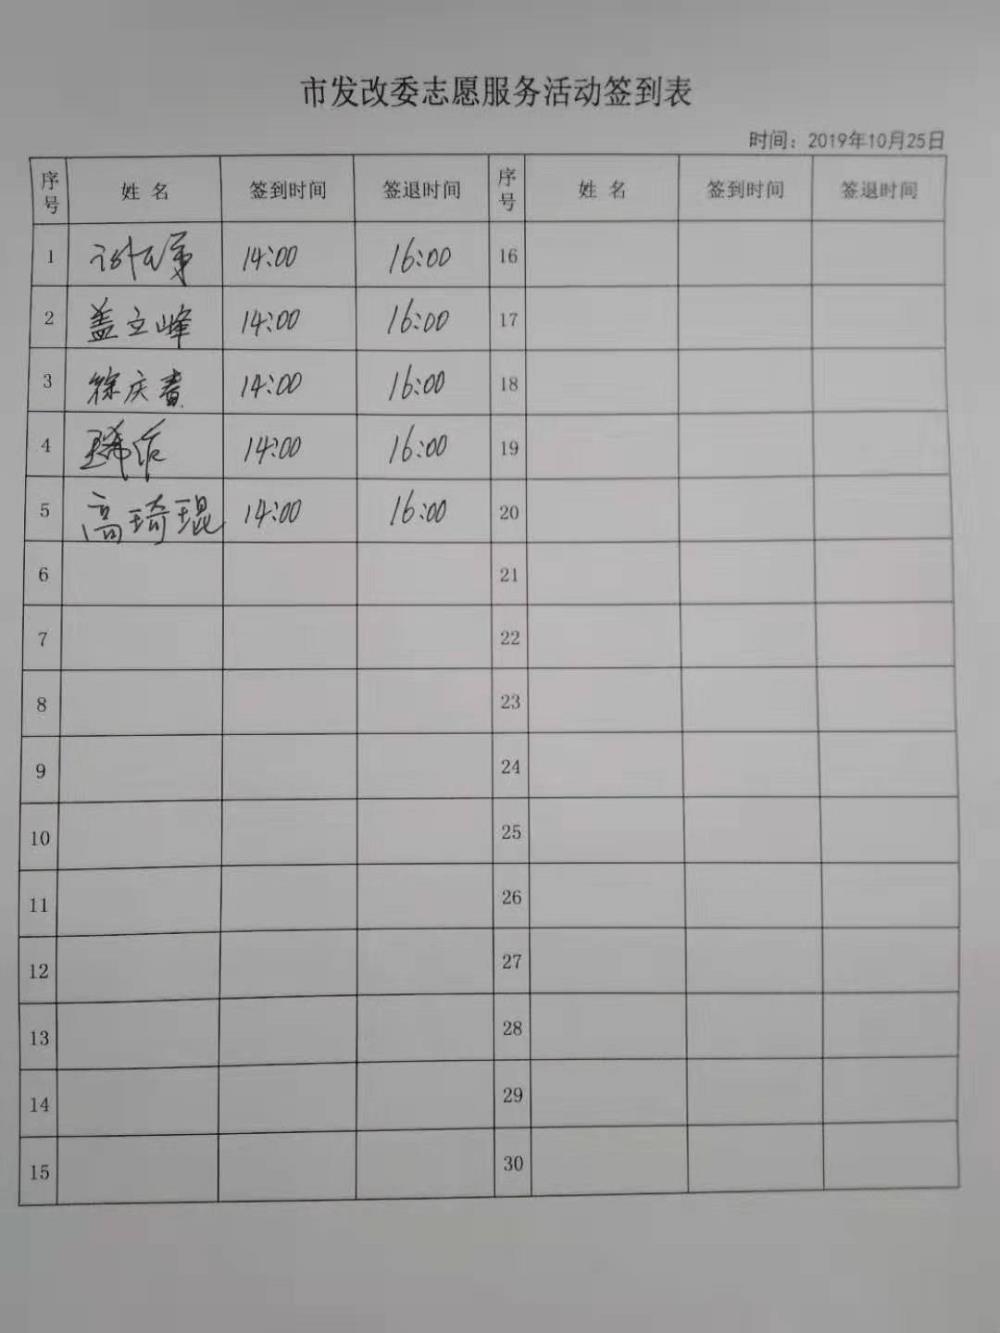 市发改委志愿服务活动签到表
时间：2019年10月25日
序号 姓 名 签到时间 签退时间 序号 姓 名 签到时间 签退时间
1 14:00 16:00 16
2 盖立峰 14:00 16:00 17
3 徐庆春 14:00 16:00 18
4 14:00 16:00 19
5 高琦琨 14:00 16:00 20
6 21
7 22
8 23
9 24
10 25
11 26
12 27
13 28
14 29
15 30